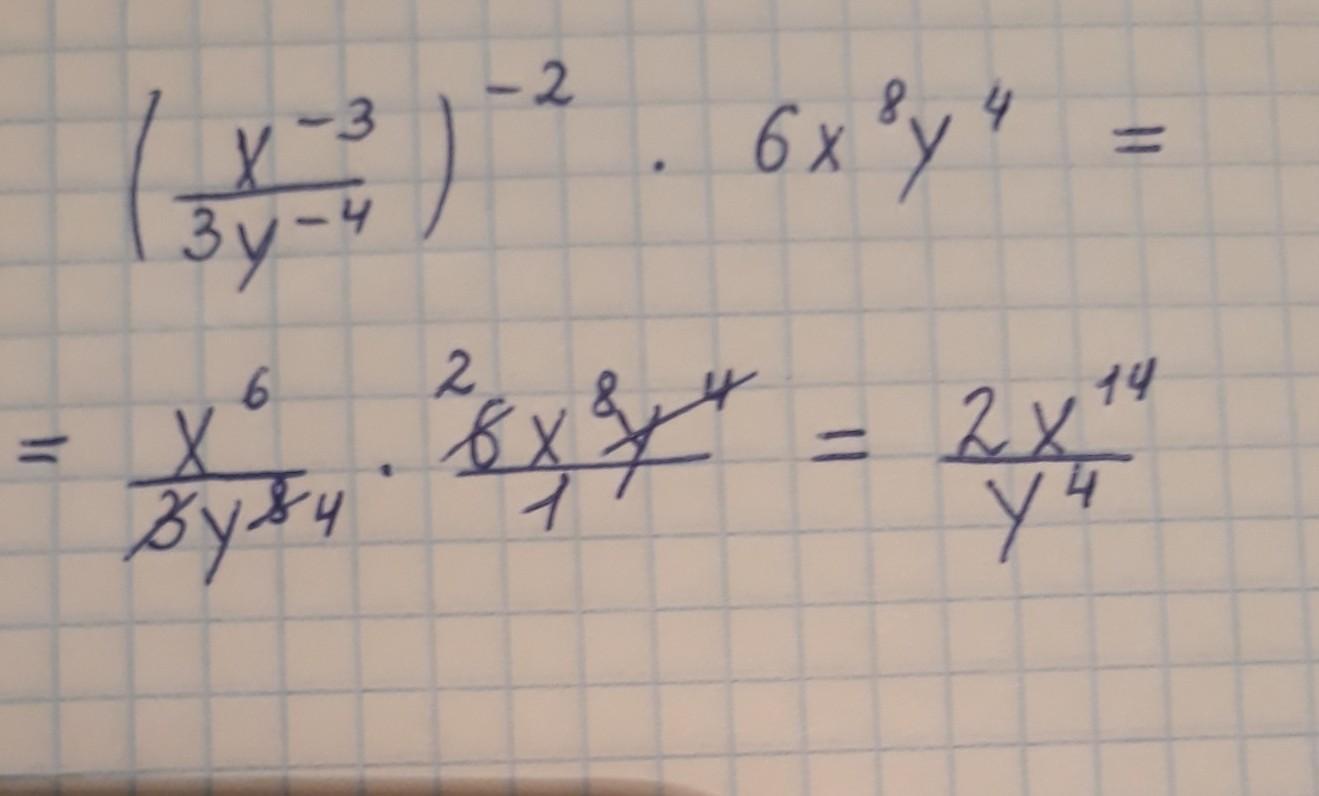 (x⁻³/3y⁻⁴)⁻² · 6x⁸y⁴ =
= x⁶/3y⁸ 4 · ² 6x⁸y⁴/1 = 2x¹⁴/y⁴